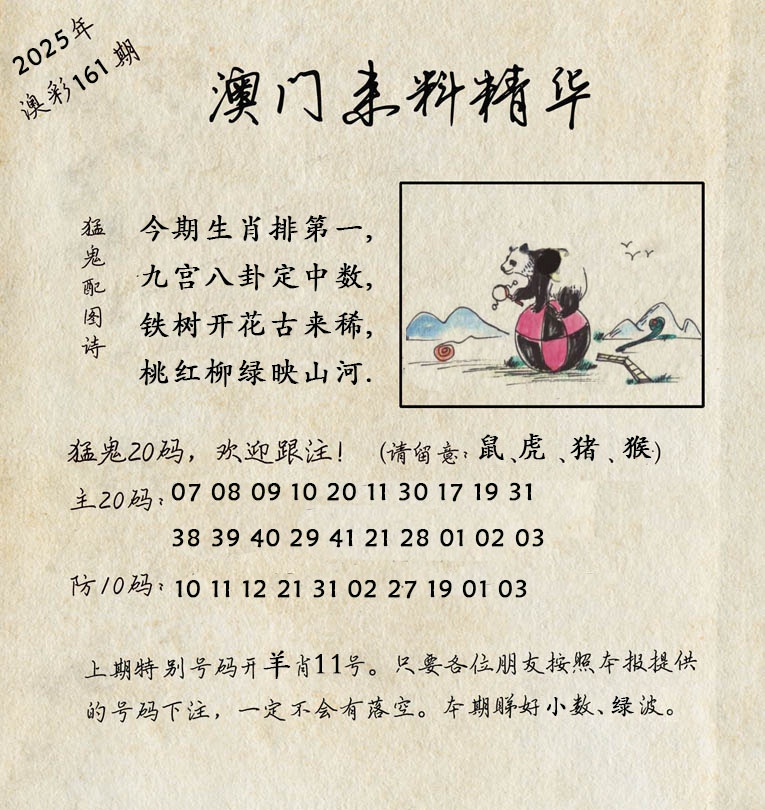 2025年
澳彩161期
澳门来料精华
猛鬼配图诗
今期生肖排第一,
九宫八卦定中数,
铁树开花古来稀,
桃红柳绿映山河.
猛鬼20码，欢迎跟注！（请留意：鼠、虎、猪、猴）
主20码：07 08 09 10 20 11 30 17 19 31
38 39 40 29 41 21 28 01 02 03
防10码：10 11 12 21 31 02 27 19 01 03
上期特别号码开羊肖11号。只要各位朋友按照本报提供
的号码下注，一定不会有落空。本期睇好小数、绿波。